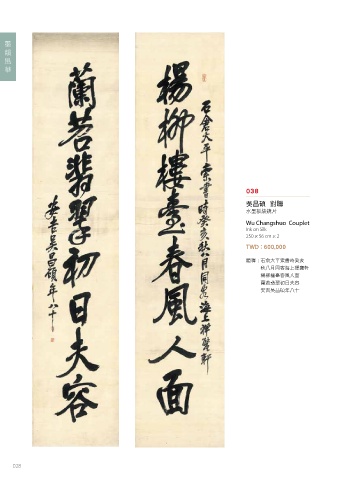 墨韻風華
楊柳樓臺春風人面
石倉大平索書時癸亥秋八月同客海上禪甓軒
蘭苕翡翠初日夫容
安吉吳昌碩年八十
038
吳昌碩 對聯
水墨絲絹鏡片
Wu Changshuo Couplet
Ink on Silk
150 × 36 cm x 2
TWD：600,000
石倉大平索書時癸亥
秋八月同客海上禪甓軒
楊柳樓臺春風人面
蘭苕翡翠初日夫容
安吉吳昌碩年八十
028